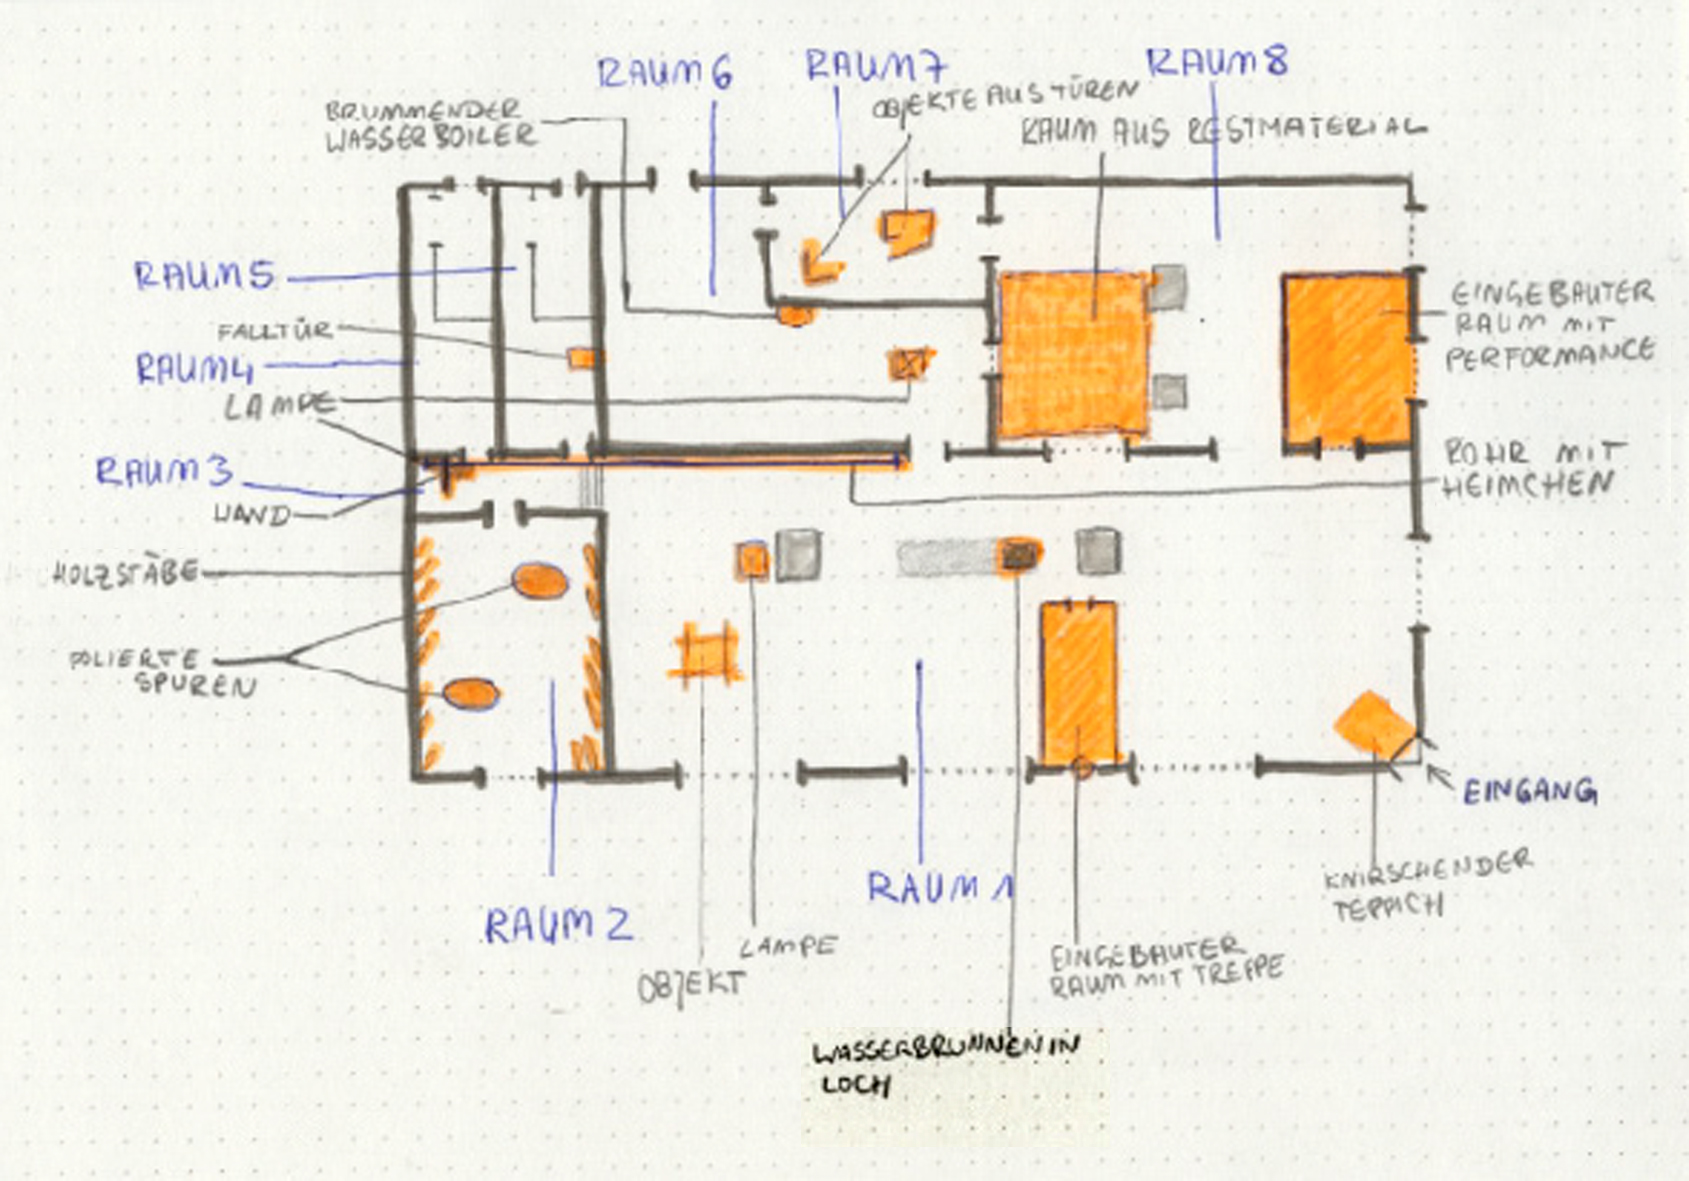 RAUM 6
RAUM 7
RAUM 8
OBJEKTE AUS TÜREN
BRUMMENDER
WASSERBOILER
RAUM AUS RESTMATERIAL
RAUM 5
EINGEBAUTER
RAUM MIT
PERFORMANCE
FALLTÜR
RAUM 4
LAMPE
RAUM 3
ROHR MIT
HEIMCHEN
HOLZSTÄBE
POLIERTE
SPUREN
EINGANG
RAUM 1
KNIRSCHENDER
TEPPICH
RAUM 2
LAMPE
OBJEKT
EINGEBAUTER
RAUM MIT TREPPE
WASSERBRUNNEN IN
LOCH